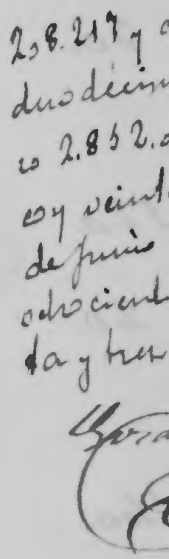 208.217 y
duodécim
co 2.852.
oy veint
de junio
ochocient
ta y tres